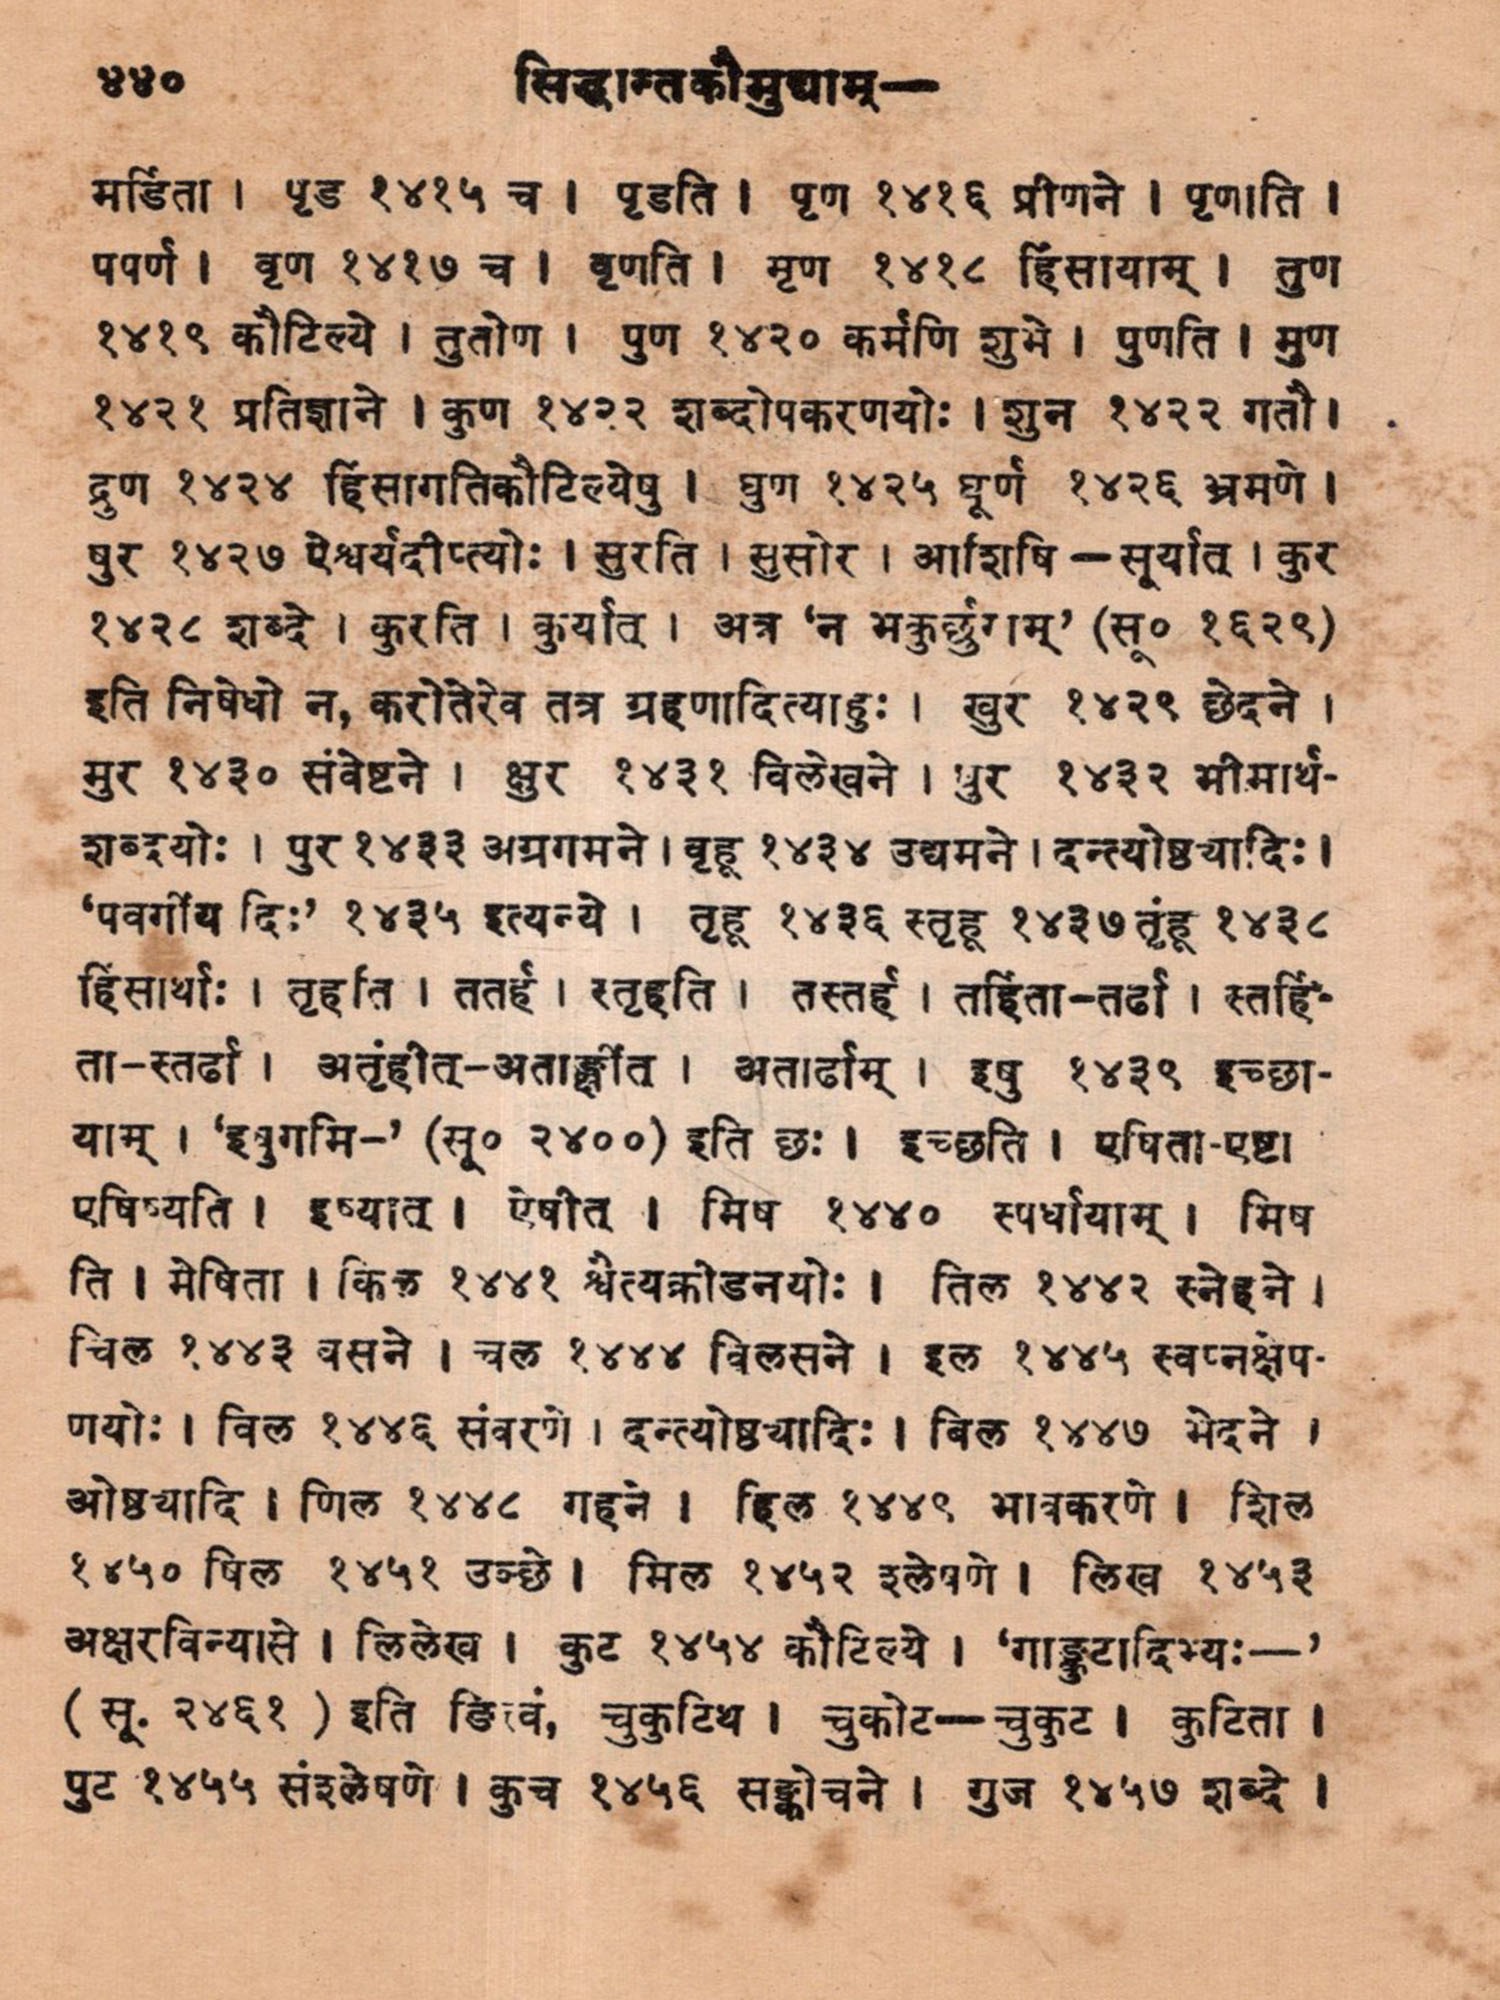 ४४० सिद्धान्तकौमुद्याम्—
मर्डिता । पृड १४१५ च । पृडति । पृण १४१६ प्रीणने । पृणाति ।
पपर्ण । वृण १४१७ च । वृणति । मृण १४१८ हिंसायाम् । तुण
१४१९ कौटिल्ये । तुतोण । पुण १४२० कर्मणि शुभे । पुणति । मुण
१४२१ प्रतिज्ञाने । कुण १४२२ शब्दोपकरणयोः । शुन १४२२ गतौ ।
द्रुण १४२४ हिंसागतिकौटिल्येषु । घुण १४२५ घूर्ण १४२६ भ्रमणे ।
षुर १४२७ ऐश्वर्यदीप्त्योः । सुरति । सुसोर । आशिषि — सूर्यात् । कुर
१४२८ शब्दे । कुरति । कुर्यात् । अत्र ‘न भकुर्छुगाम्’ (सू० १६२९)
इति निषेधो न, करोतेरेव तत्र ग्रहणादित्याहुः । खुर १४२९ छेदने ।
मुर १४३० संवेष्टने । क्षुर १४३१ विलेखने । घुर १४३२ भीमार्थ-
शब्दयोः । पुर १४३३ अग्रगमने । वृहू १४३४ उद्यमने । दन्त्योष्ठ्यादिः ।
‘पवर्गीय दिः’ १४३५ इत्यन्ये । तृहू १४३६ स्तृहू १४३७ तृंहू १४३८
हिंसार्थाः । तृहति । ततर्ह । स्तृहति । तस्तर्ह । तर्हिता-तर्ढा । स्तर्हि-
ता-स्तर्ढा । अतृंहीत्-अतार्ङ्क्षीत् । अतार्ढाम् । इषु १४३९ इच्छा-
याम् । ‘इषुगमि-’ (सू० २४००) इति छः । इच्छति । एषिता-एष्टा
एषिष्यति । इष्यात् । ऐषीत् । मिष १४४० स्पर्धायाम् । मिष
ति । मेषिता । किल १४४१ श्वैत्यक्रीडनयोः । तिल १४४२ स्नेहने ।
चिल १४४३ वसने । चल १४४४ विलसने । इल १४४५ स्वप्नक्षेप-
णयोः । विल १४४६ संवरणे । दन्त्योष्ठ्यादिः । बिल १४४७ भेदने ।
ओष्ठ्यादि । णिल १४४८ गहने । हिल १४४९ भावकरणे । शिल
१४५० षिल १४५१ उञ्छे । मिल १४५२ श्लेषणे । लिख १४५३
अक्षरविन्यासे । लिलेख । कुट १४५४ कौटिल्ये । ‘गाङ्कुटादिभ्यः—’
( सू. २४६१ ) इति ङित्त्वं, चुकुटिथ । चुकोट—चुकुट । कुटिता ।
पुट १४५५ संश्लेषणे । कुच १४५६ सङ्कोचने । गुज १४५७ शब्दे ।